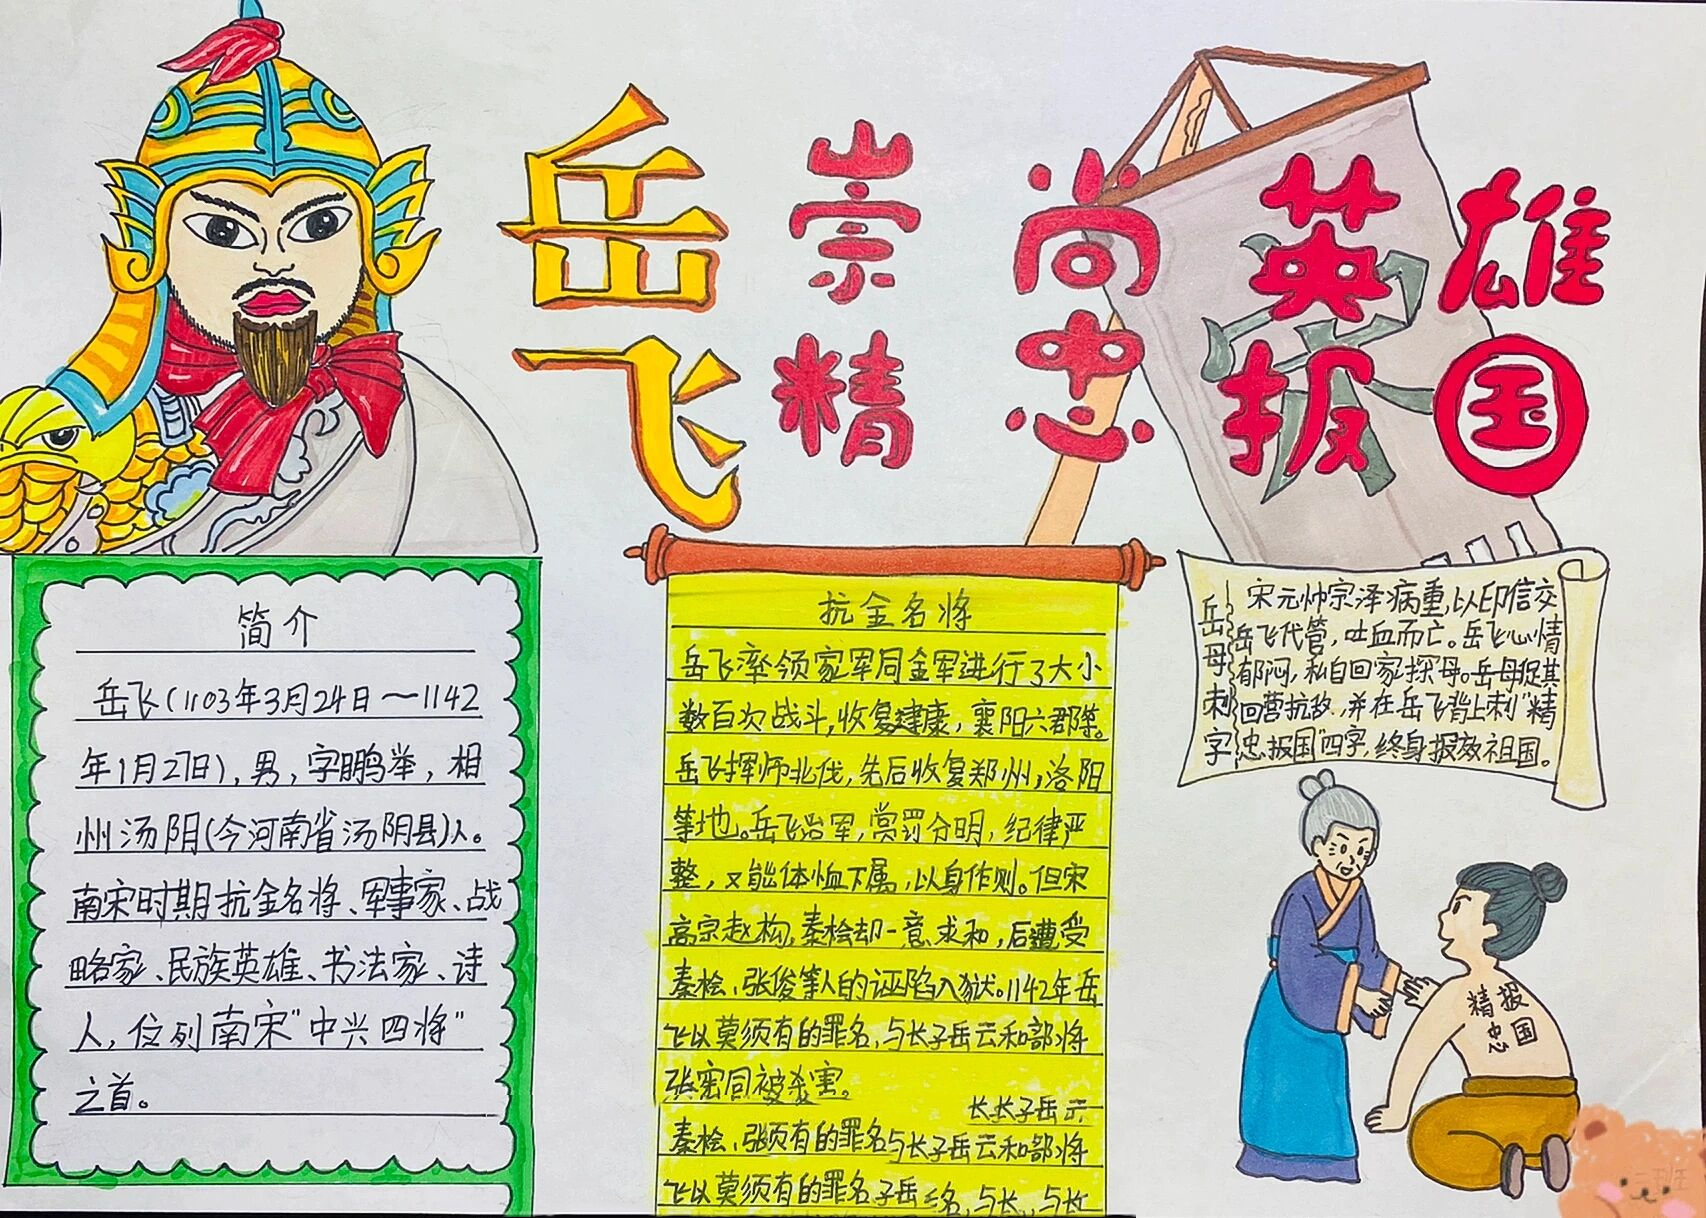 岳飞
崇尚英雄
精忠报国
简介
岳飞(1103年3月24日～1142
年1月27日),男,字鹏举,相
州汤阴(今河南省汤阴县)人。
南宋时期抗金名将、军事家、战
略家、民族英雄、书法家、诗
人,位列南宋"中兴四将"
之首。
抗金名将
岳飞率领家军同金军进行了大小
数百次战斗,收复建康,襄阳六郡等。
岳飞挥师北伐,先后收复郑州,洛阳
等地。岳飞治军,赏罚分明,纪律严
整,又能体恤下属,以身作则。但宋
高宗赵构,秦桧却一意求和,后遭受
秦桧、张俊等人的诬陷入狱。1142年岳
飞以莫须有的罪名,与长子岳云和部将
张宪同被杀害。
长长子岳云
秦桧、张须有的罪名与长子岳云和部将
飞以莫须有的罪名子岳 名,与长,与长
岳母刺字
宋元帅宗泽病重,以印信交
岳飞代管,吐血而亡。岳飞心情
郁闷,私自回家探母。岳母促其
回营抗敌,并在岳飞背上刺"精
忠报国"四字,终身报效祖国。
精忠
报国
二班